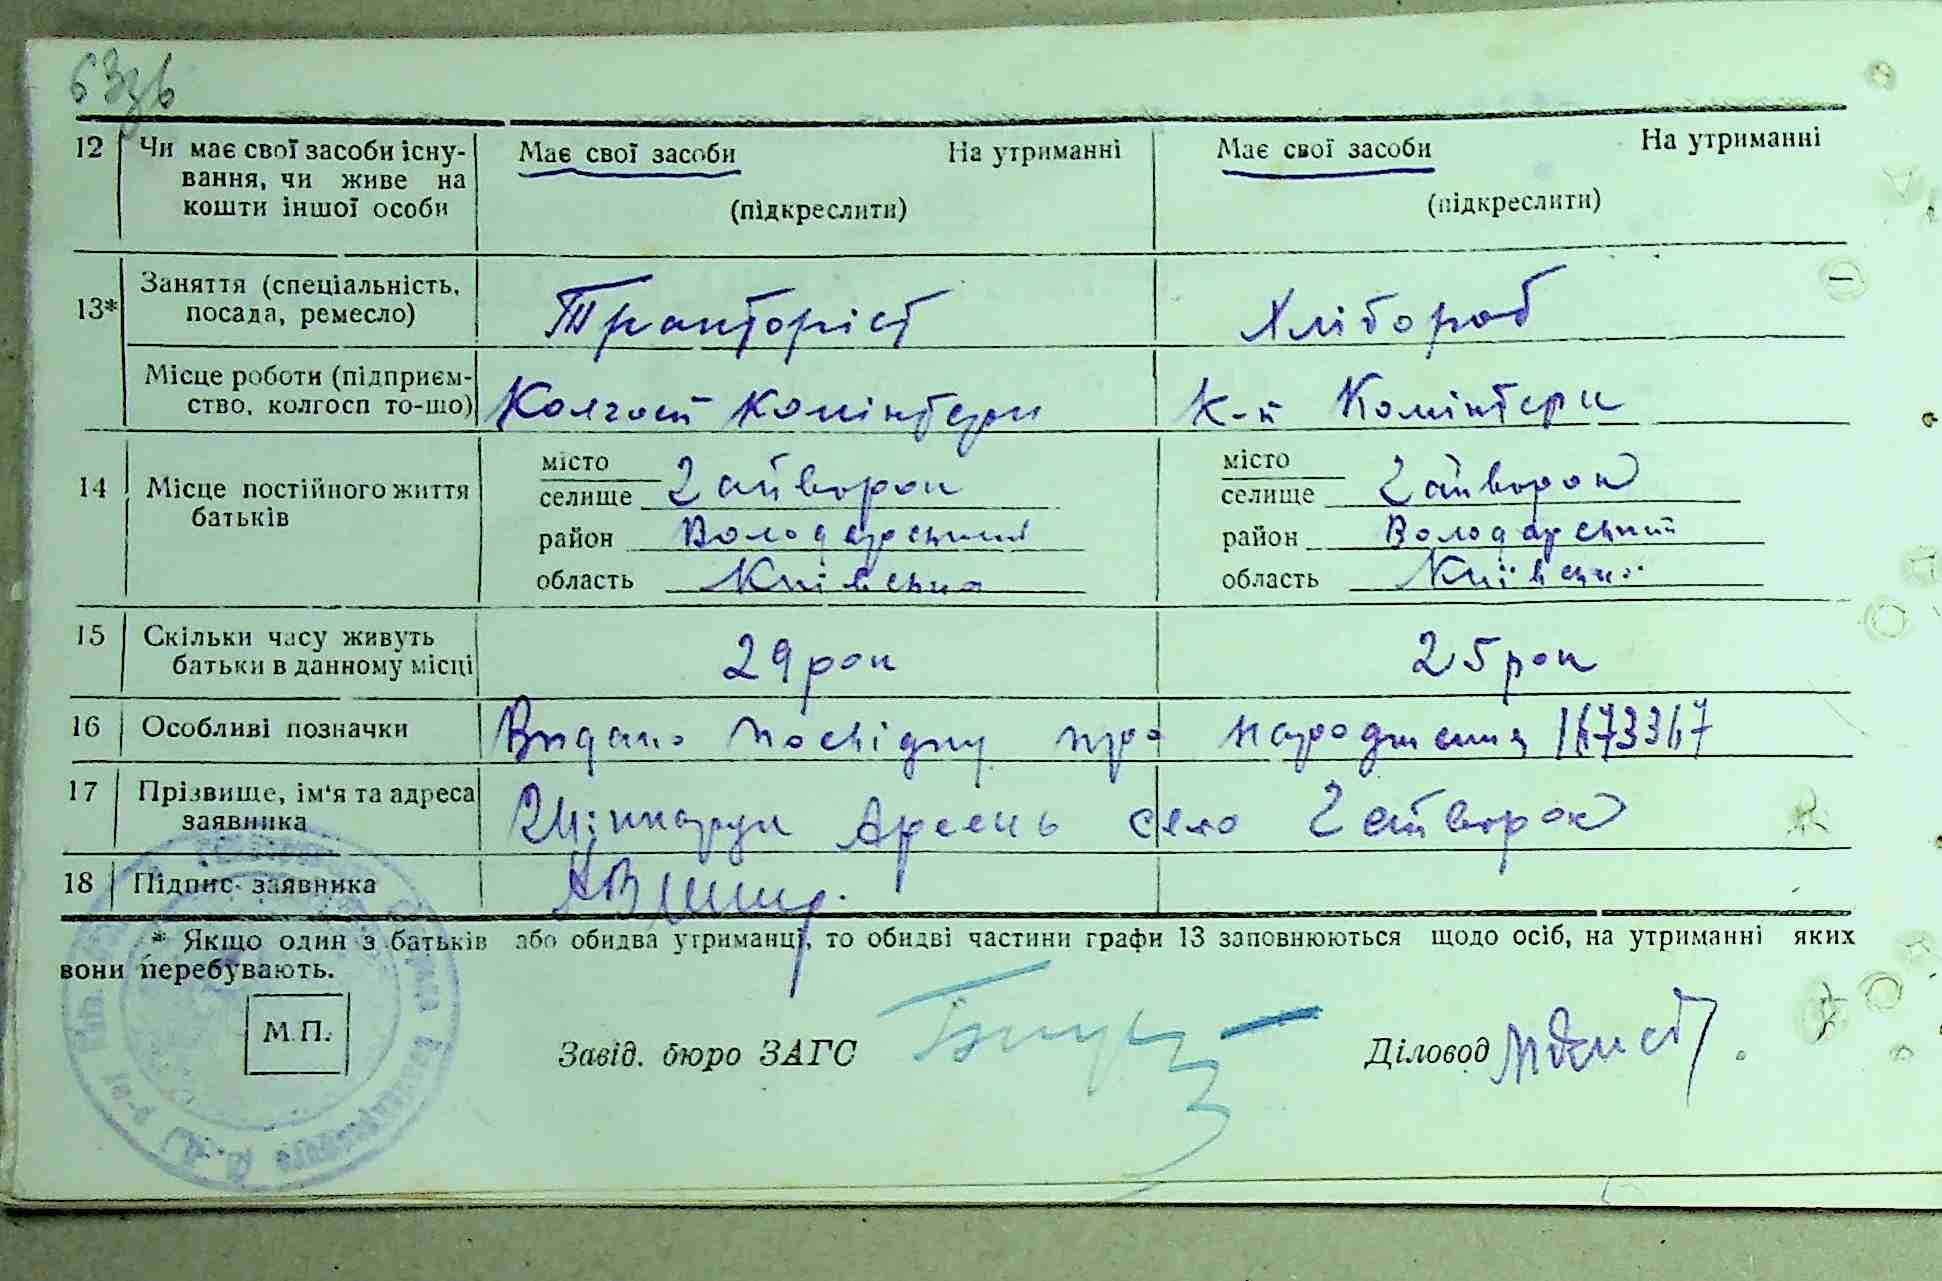 63зв
12 Чи має свої засоби існу-
вання, чи живе на
кошти іншої особи
Має свої засоби На утриманні
(підкреслити)
Має свої засоби На утриманні
(підкреслити)
13* Заняття (спеціальність,
посада, ремесло)
Тракторіст
Хлібороб
Місце роботи (підприєм-
ство, колгосп то-що)
Колгосп Комінтерн
к-п Комінтерн
14 Місце постійного життя
батьків
місто
селище Гайворон
район Володарський
область Київська
місто
селище Гайворон
район Володарський
область Київська
15 Скільки часу живуть
батьки в данному місці
29 рок
25 рок
16 Особливі позначки
Видано посвідку про народження
17 Прізвище, ім'я та адреса
заявника
Арсень село Гайворон
18 Підпис заявника
* Якщо один з батьків або обидва утриманці, то обидві частини графи 13 заповнюються щодо осіб, на утриманні яких
вони перебувають.
М.П.
Завід. бюро ЗАГС
Діловод